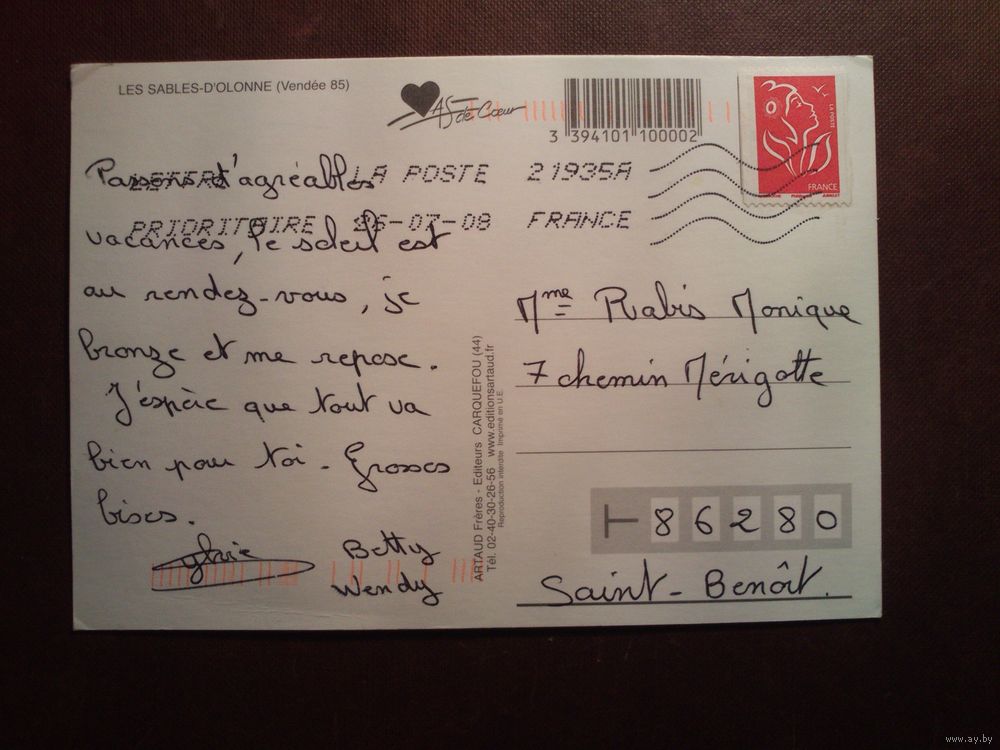 LES SABLES-D'OLONNE (Vendée 85)
AS de Cœur
3 394101 100002
LA POSTE
FRANCE
LETTRE LA POSTE 21935A
PRIORITAIRE 26-07-08 FRANCE
Passons d'agréables
vacances, le soleil est
au rendez-vous, je
bronze et me repose.
J'espère que tout va
bien pour toi. Grosses
bises.
Betty
Wendy
ARTAUD Frères - Editeurs CARQUEFOU (44)
Tél. 02-40-30-26-56 www.editionsartaud.fr
Reproduction interdite Imprimé en U.E.
Mme Rabis Monique
7 chemin Mérigotte
86280
Saint-Benoît.
www.ay.by